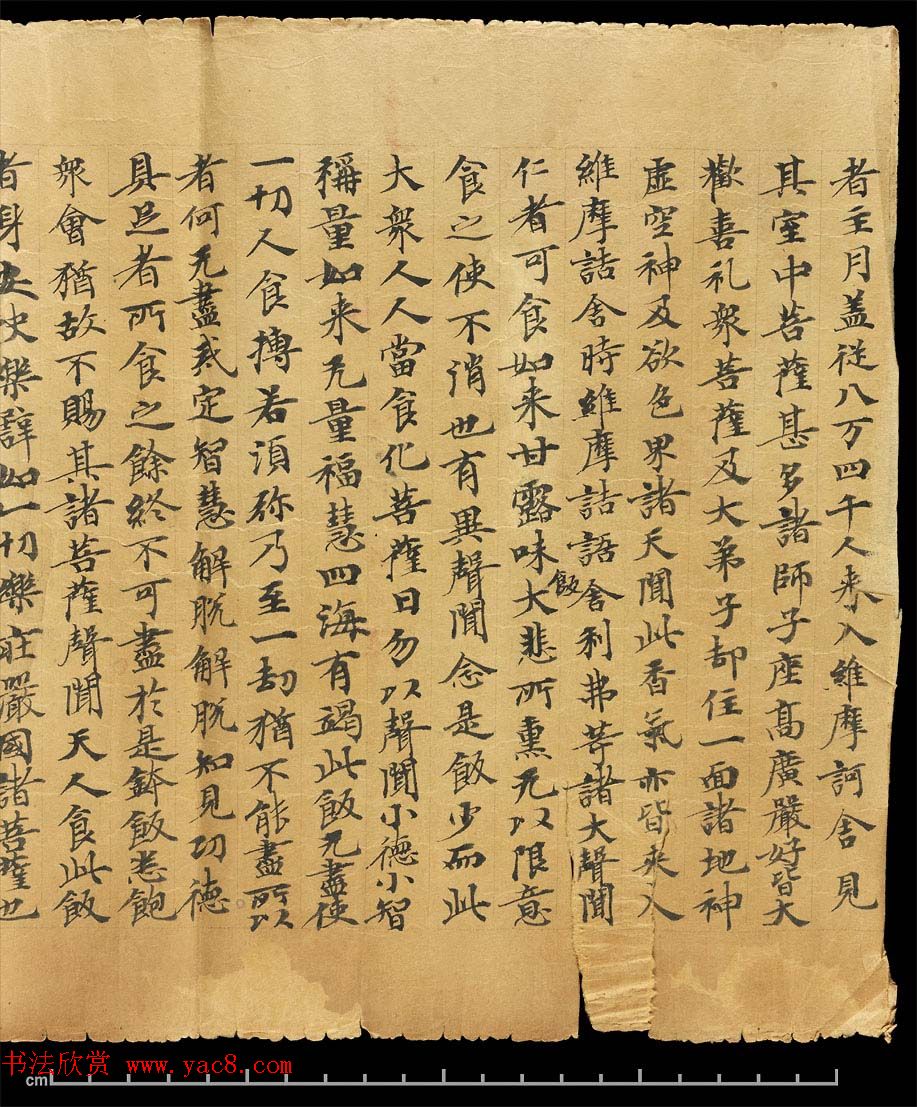 者主月盖從八万四千人来入維摩訶舍見
其室中菩薩甚多諸師子座髙廣嚴好皆大
歡喜礼衆菩薩及大弟子却住一面諸地神
虛空神及欲色界諸天聞此香氣亦皆来入
維摩詰舍時維摩詰語舍利弗等諸大聲聞
仁者可食如来甘露味飯大悲所熏无以限意
食之使不消也有異聲聞念是飯少而此
大衆人人當食化菩薩曰勿以聲聞小德小智
稱量如来无量福慧四海有竭此飯无盡使
一切人食摶若湏弥乃至一劫猶不能盡所以
者何无盡戒定智慧解脱解脱知見功德
具足者所食之餘終不可盡於是鉢飯悉飽
衆會猶故不賜其諸菩薩聲聞天人食此飯
者身安快樂辟如一切樂莊嚴國諸菩薩也
书法欣赏 www.yac8.com
cm